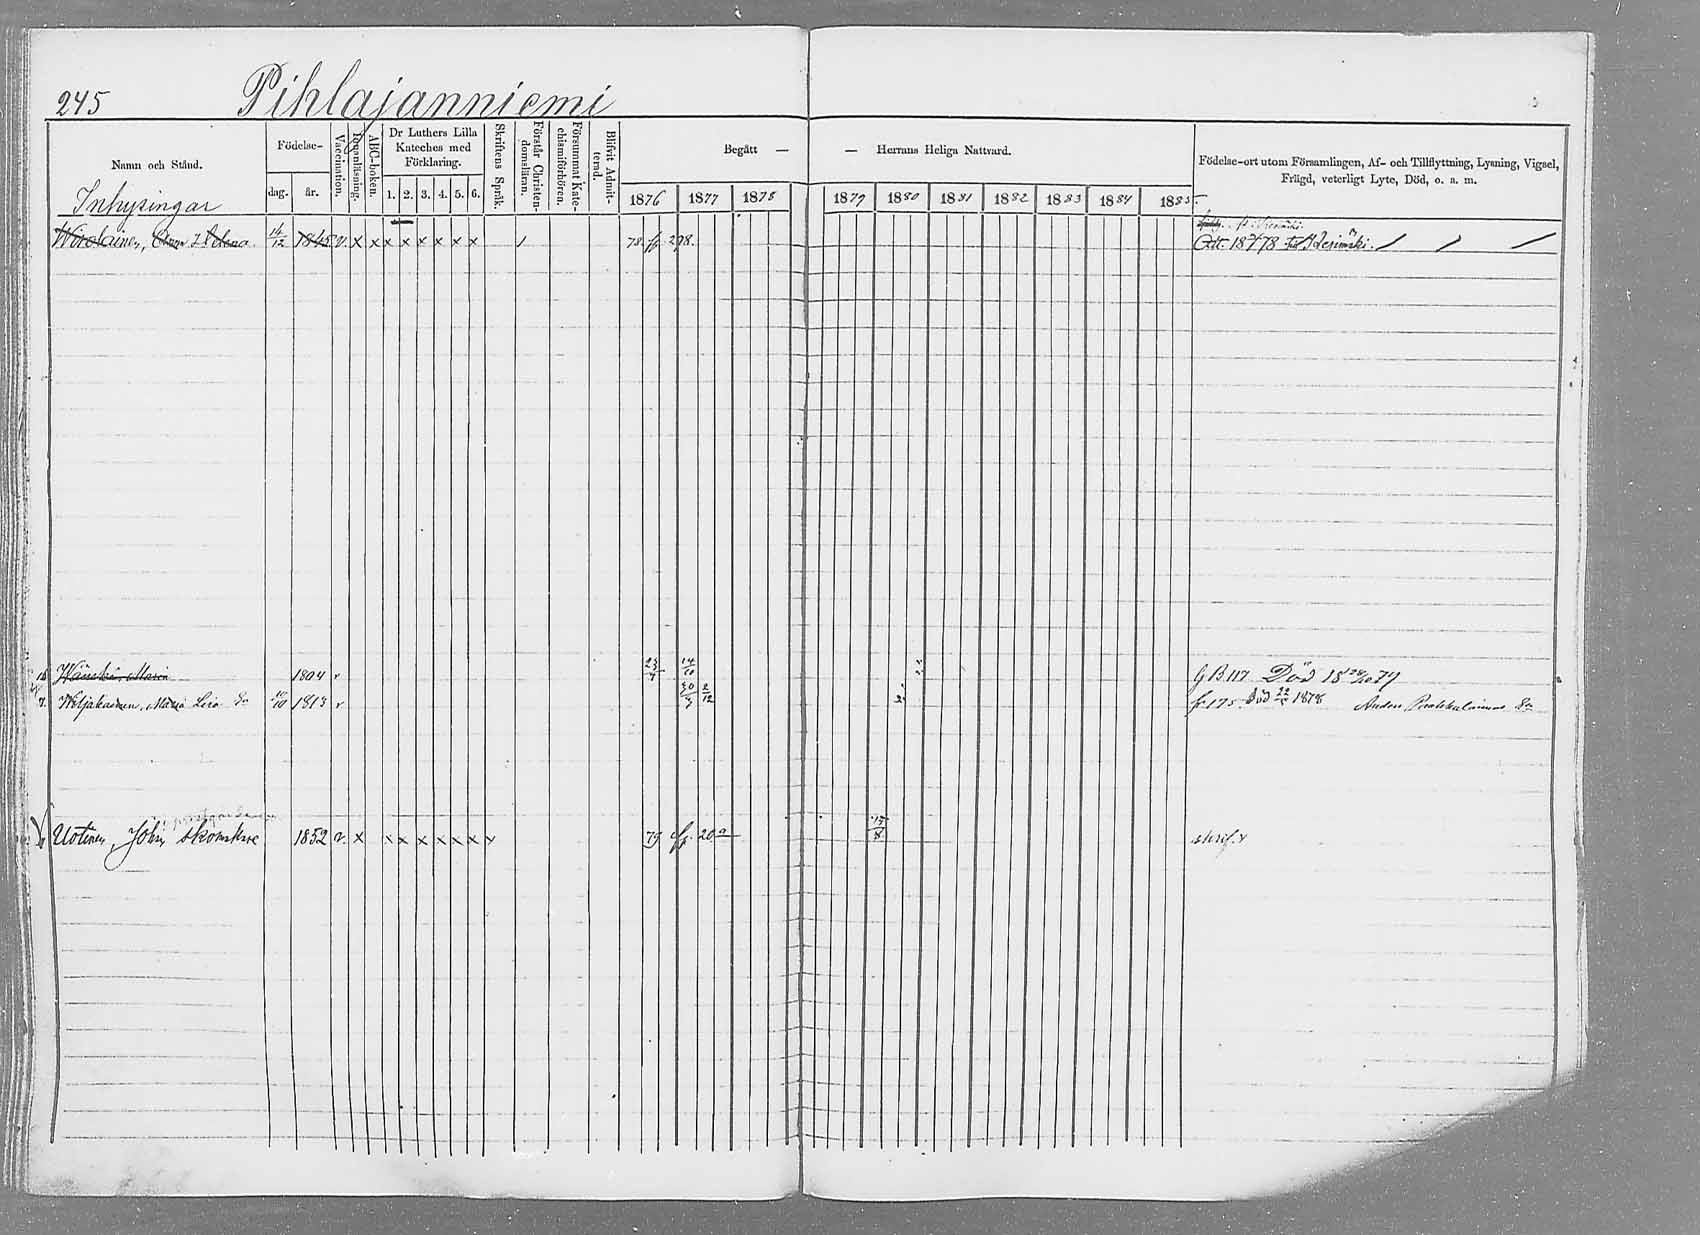 245 Pihlajanniemi
Namn och Stånd.
Födelse-
dag. år.
Vaccination.
Innanläsning.
ABC-boken.
Dr Luthers Lilla Kateches med Förklaring.
1. 2. 3. 4. 5. 6.
Skriftens Språk.
Förstår Christendomsläran.
Försummat Katechismiförhören.
Blifvit Admitterad.
Begått — — Herrans Heliga Nattvard.
1876 1877 1878 1879 1880 1881 1882 1883 1884 1885
Födelse-ort utom Församlingen, Af- och Tillflyttning, Lysning, Vigsel,
Frägd, veterligt Lyte, Död, o. a. m.
Inhysingar
Wirolainen, Anna Helena 14/12 1845 v. x x x x x x x x 78. fr 298.
1804 v 23/9 14/10 Död 18 28/10 79
Wiljakainen, Maria Lisa 10/10 1813 v 30/9 2/12 fr 175 Död 22 1878 Anders
Uotinen, Joh. 1852 v. x x x x x x x x 79 fr. 20 15/8 skrif. x